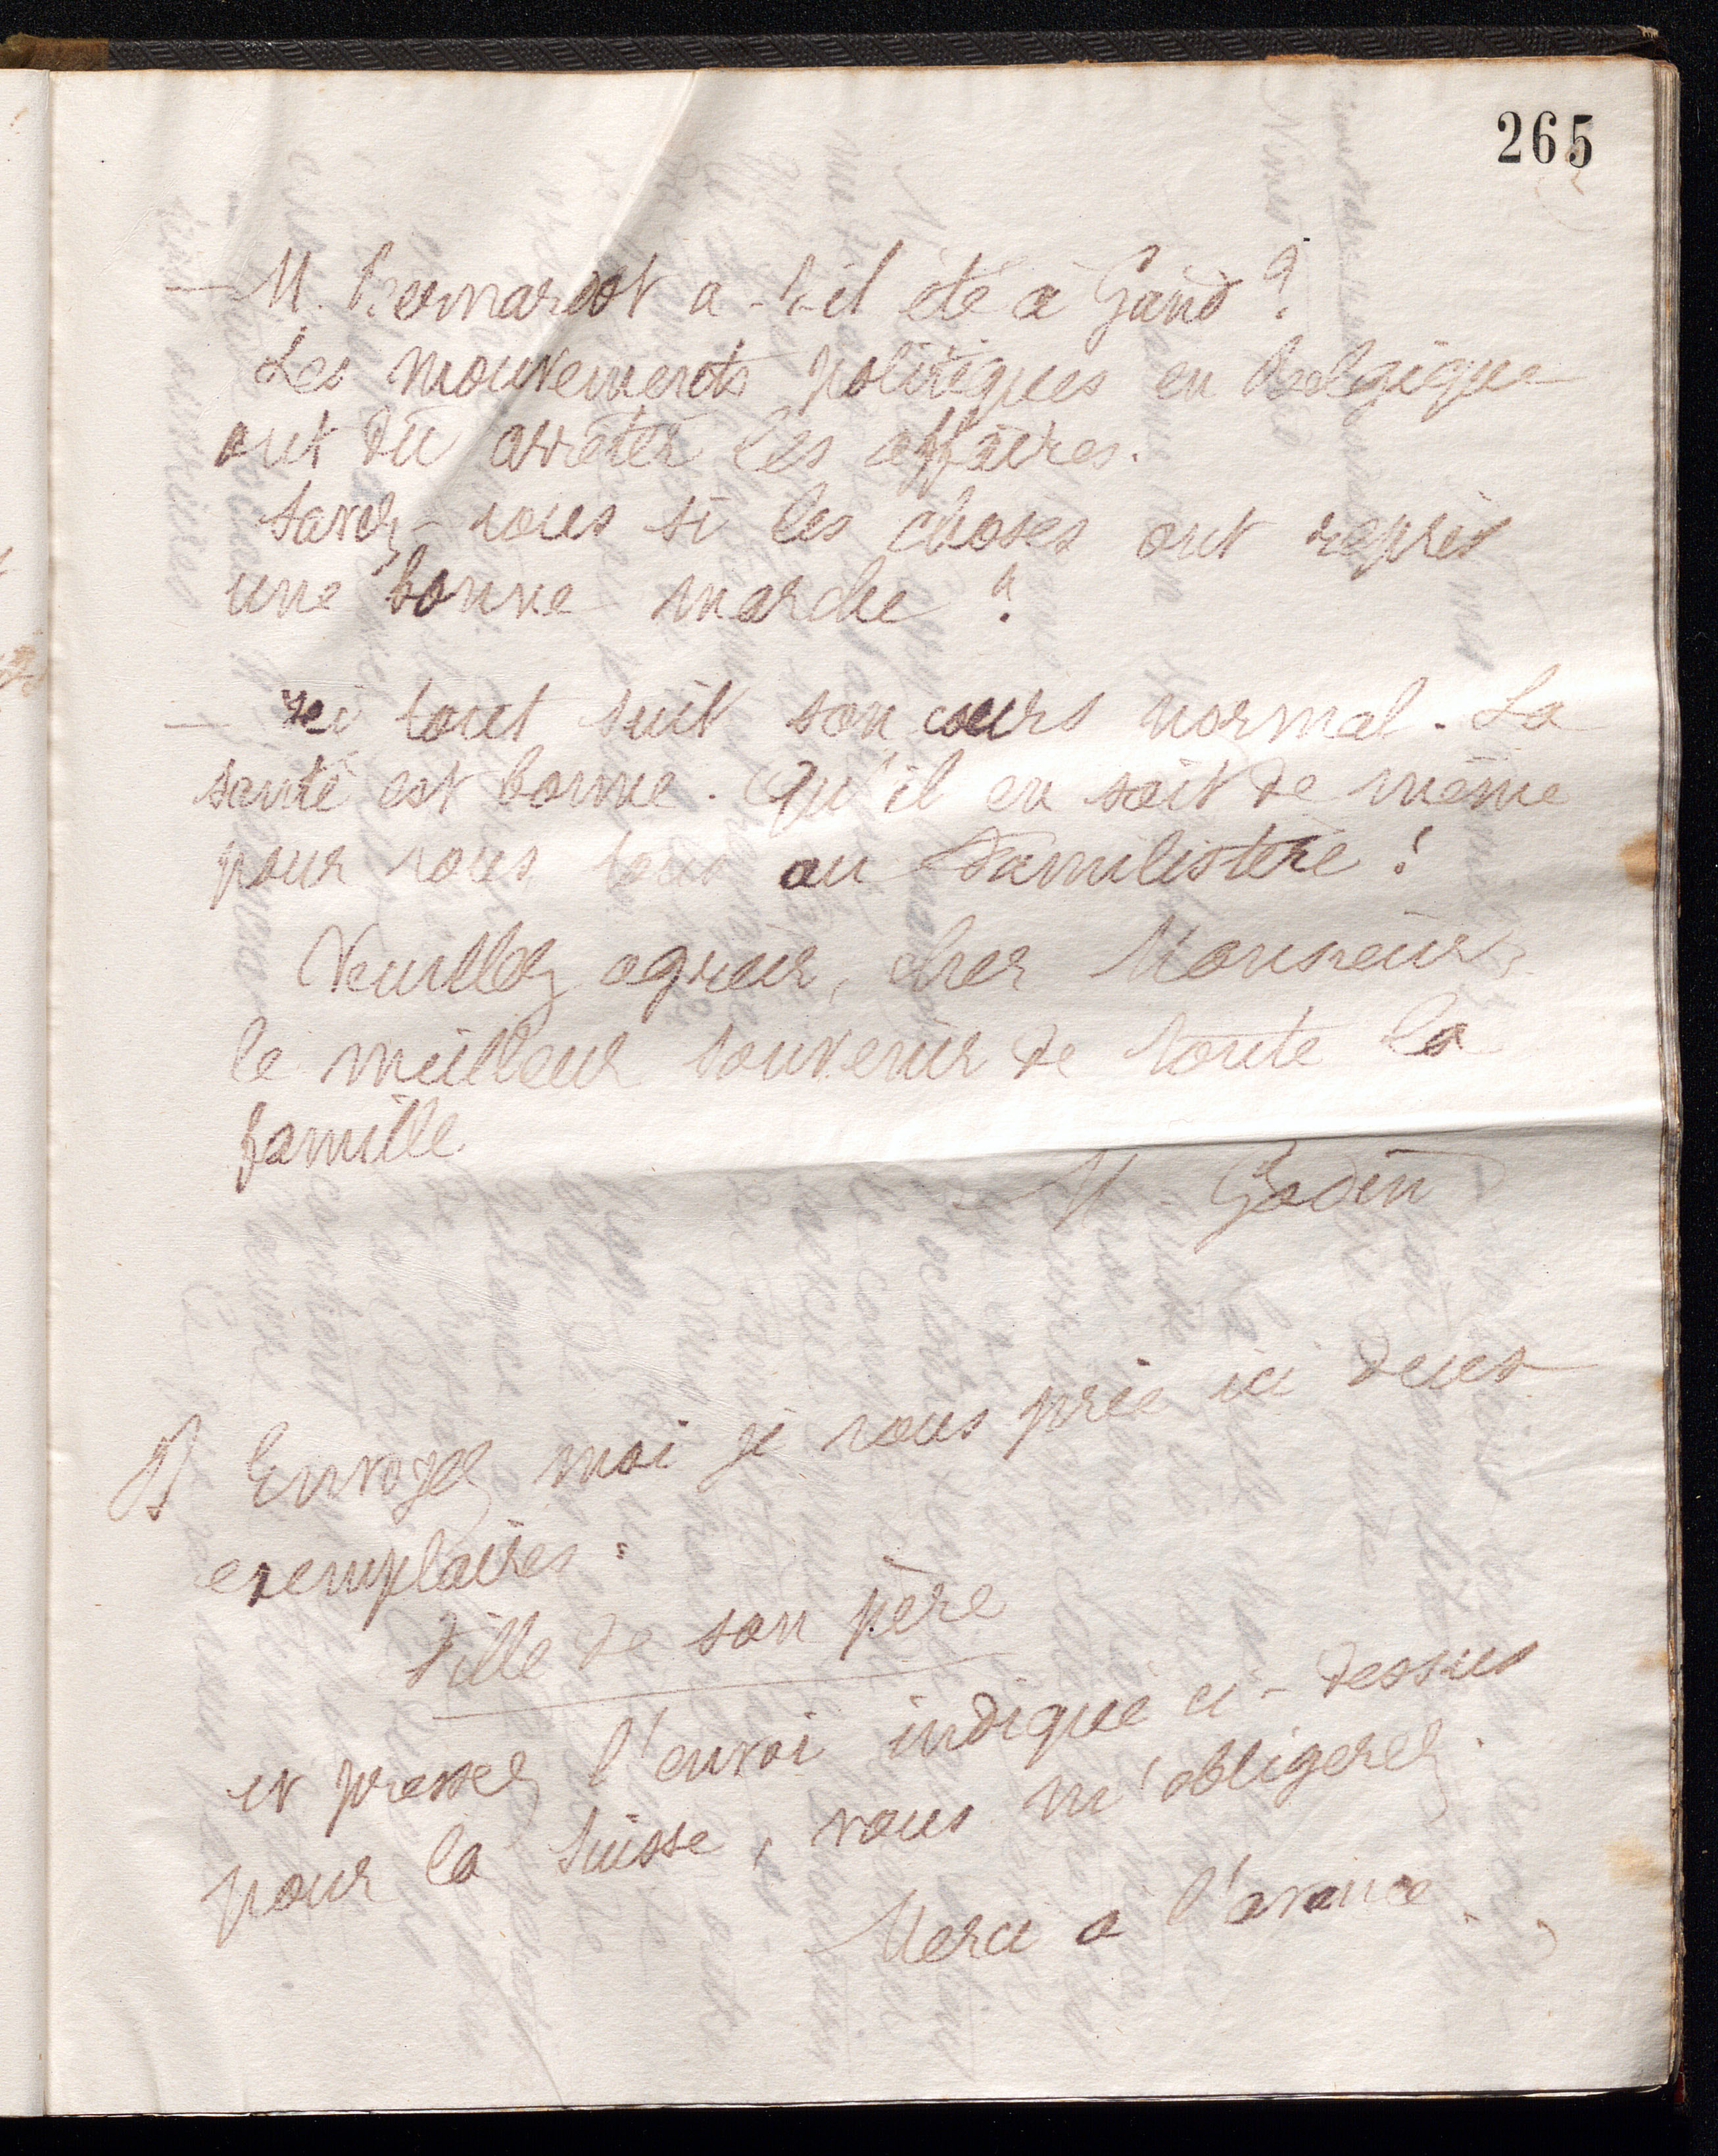 265
— M. Bernardot a-t-il été à Gand ?
Les mouvements politiques en Belgique
ont dû arrêter les affaires.
Savez-vous si les choses ont repris
une bonne marche ?
— Ici tout suit son cours normal. La
santé est bonne. Qu'il en soit de même
pour vous tous au Familistère !
Veuillez agréer, cher Monsieur,
le meilleur souvenir de toute la
famille
M. Godin
PS Envoyez moi je vous prie ici deux
exemplaires :
Fille de son père
et pressez l'envoi indiqué ci-dessus
pour la Suisse, vous m'obligerez.
Merci à l'avance.